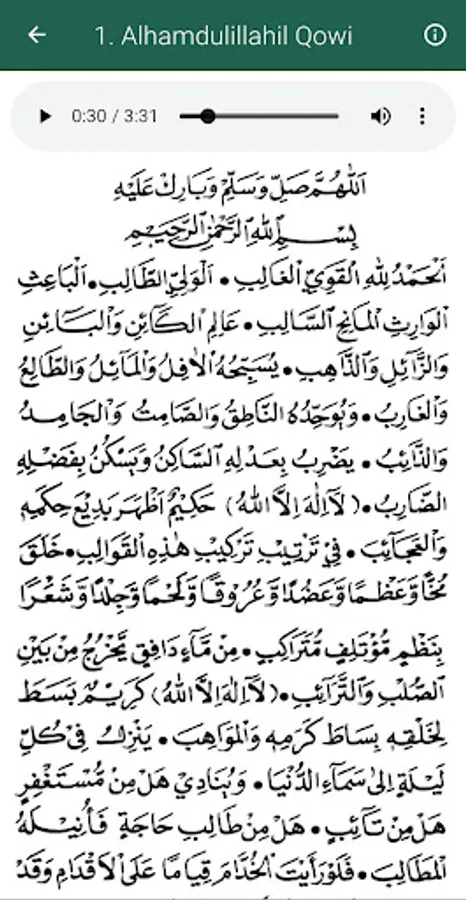 1. Alhamdulillahil Qowi
0:30 / 3:31
اَللّٰهُمَّ صَلِّ وَسَلِّمْ وَبَارِكْ عَلَيْهِ
بِسْمِ اللهِ الرَّحْمٰنِ الرَّحِيْمِ
اَلْحَمْدُ لِلّٰهِ الْقَوِيِّ الْغَالِبِ • اَلْوَلِيِّ الطَّالِبِ • اَلْبَاعِثِ
الْوَارِثِ الْمَانِحِ السَّالِبِ • عَالِمِ الْكَائِنِ وَالْبَائِنِ
وَالزَّائِلِ وَالذَّاهِبِ • يُسَبِّحُهُ الْاٰفِلُ وَالْمَائِلُ وَالطَّالِعُ
وَالْغَارِبُ • وَيُوَحِّدُهُ النَّاطِقُ وَالصَّامِتُ وَالْجَامِدُ
وَالذَّائِبُ • يَضْرِبُ بِعَدْلِهِ السَّاكِنُ وَيَسْكُنُ بِفَضْلِهِ
الضَّارِبُ • (لَآ اِلٰهَ اِلَّا اللهُ) حَكِيْمٌ اَظْهَرَ بَدِيْعَ حِكَمِهِ
وَالْعَجَائِبَ • فِيْ تَرْتِيْبِ تَرْكِيْبِ هٰذِهِ الْقَوَالِبِ • خَلَقَ
مُخًّا وَّعَظْمًا وَّعَضُدًا وَّعُرُوْقًا وَّلَحْمًا وَّجِلْدًا وَّشَعْرًا
بِنَظْمٍ مُؤْتَلِفٍ مُتَرَاكِبٍ • مِنْ مَّآءٍ دَافِقٍ يَّخْرُجُ مِنْ بَيْنِ
الصُّلْبِ وَالتَّرَآئِبِ • (لَآ اِلٰهَ اِلَّا اللهُ) كَرِيْمٌ بَسَطَ
لِخَلْقِهِ بِسَاطَ كَرَمِهِ وَالْمَوَاهِبِ • يَنْزِلُ فِيْ كُلِّ
لَيْلَةٍ اِلٰى سَمَآءِ الدُّنْيَا • وَيُنَادِيْ هَلْ مِنْ مُسْتَغْفِرٍ
هَلْ مِنْ تَآئِبٍ • هَلْ مِنْ طَالِبِ حَاجَةٍ فَأُنِيْلَهُ
الْمَطَالِبَ • فَلَوْ رَأَيْتَ الْخُدَّامَ قِيَامًا عَلَى الْاَقْدَامِ وَقَدْ